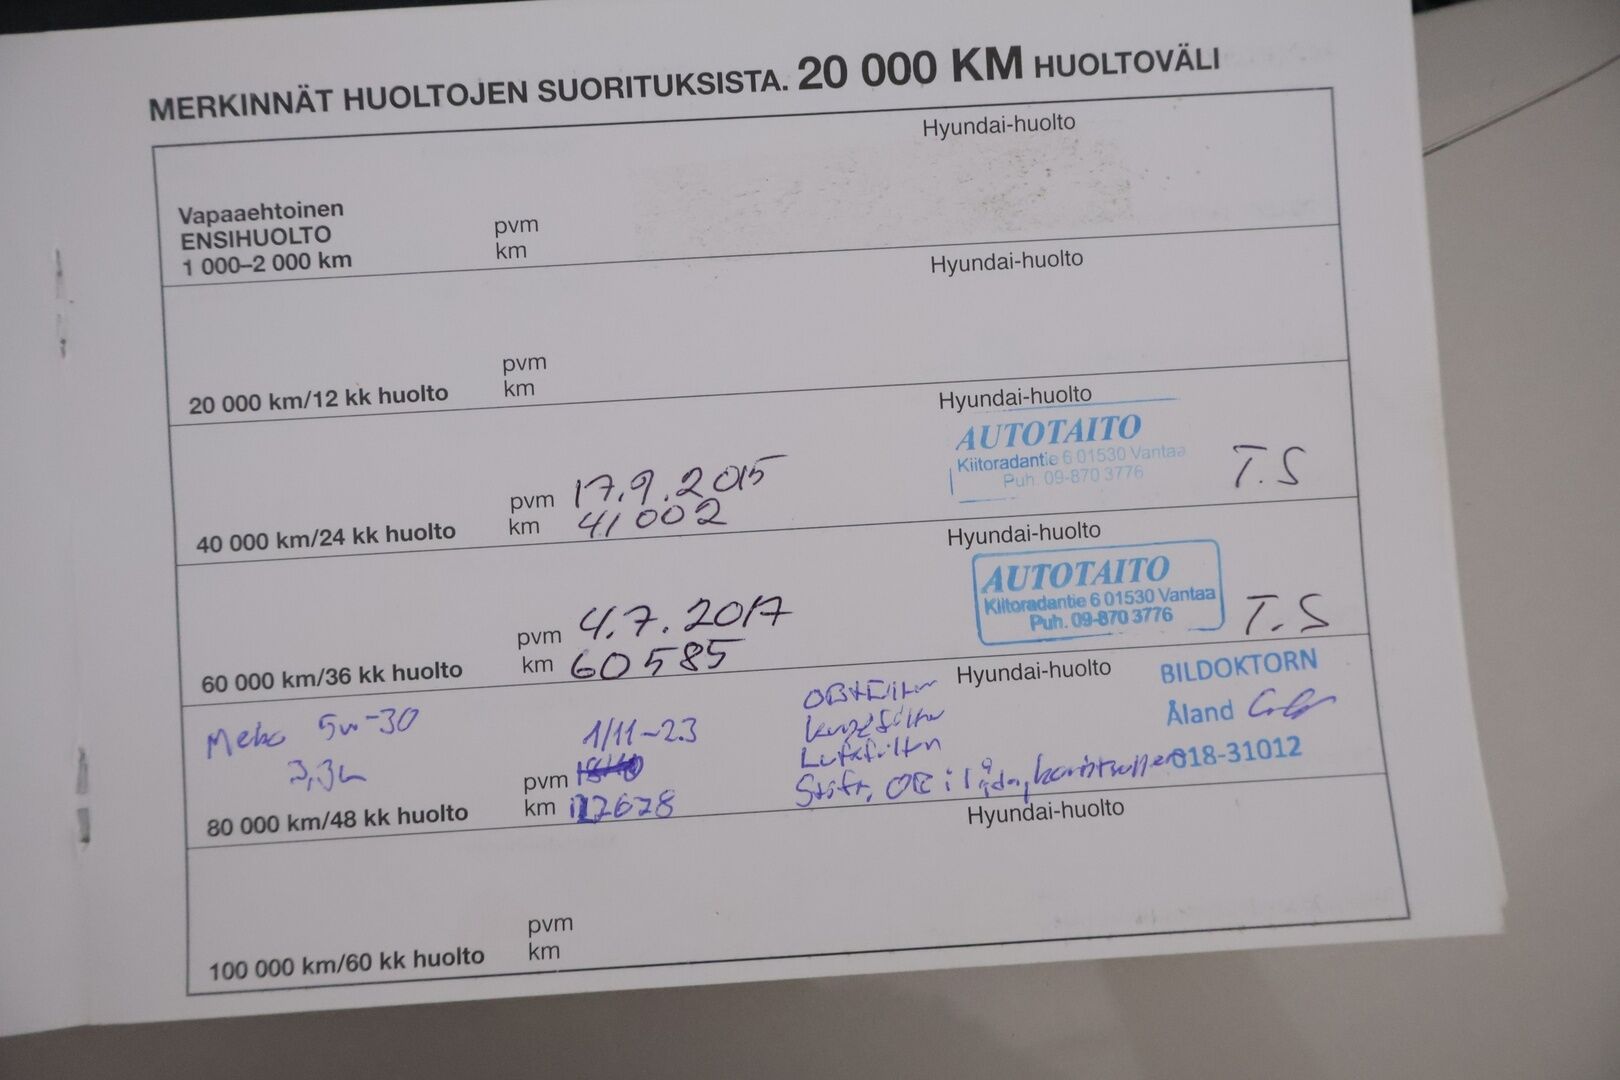 MERKINNÄT HUOLTOJEN SUORITUKSISTA. 20 000 KM HUOLTOVÄLI
Hyundai-huolto
Vapaaehtoinen
ENSIHUOLTO
1 000–2 000 km
pvm
km
Hyundai-huolto
20 000 km/12 kk huolto
pvm
km
Hyundai-huolto
AUTOTAITO
Kiitoradantie 6 01530 Vantaa
Puh. 09-870 3776
T.S
40 000 km/24 kk huolto
pvm 17.9.2015
km 41002
Hyundai-huolto
AUTOTAITO
Kiitoradantie 6 01530 Vantaa
Puh. 09-870 3776
T.S
60 000 km/36 kk huolto
pvm 4.7.2017
km 60585
Hyundai-huolto
BILDOKTORN
Åland
018-31012
5w-30
3,3L
1/11-23
Luftfilter
80 000 km/48 kk huolto
pvm
km
Hyundai-huolto
100 000 km/60 kk huolto
pvm
km